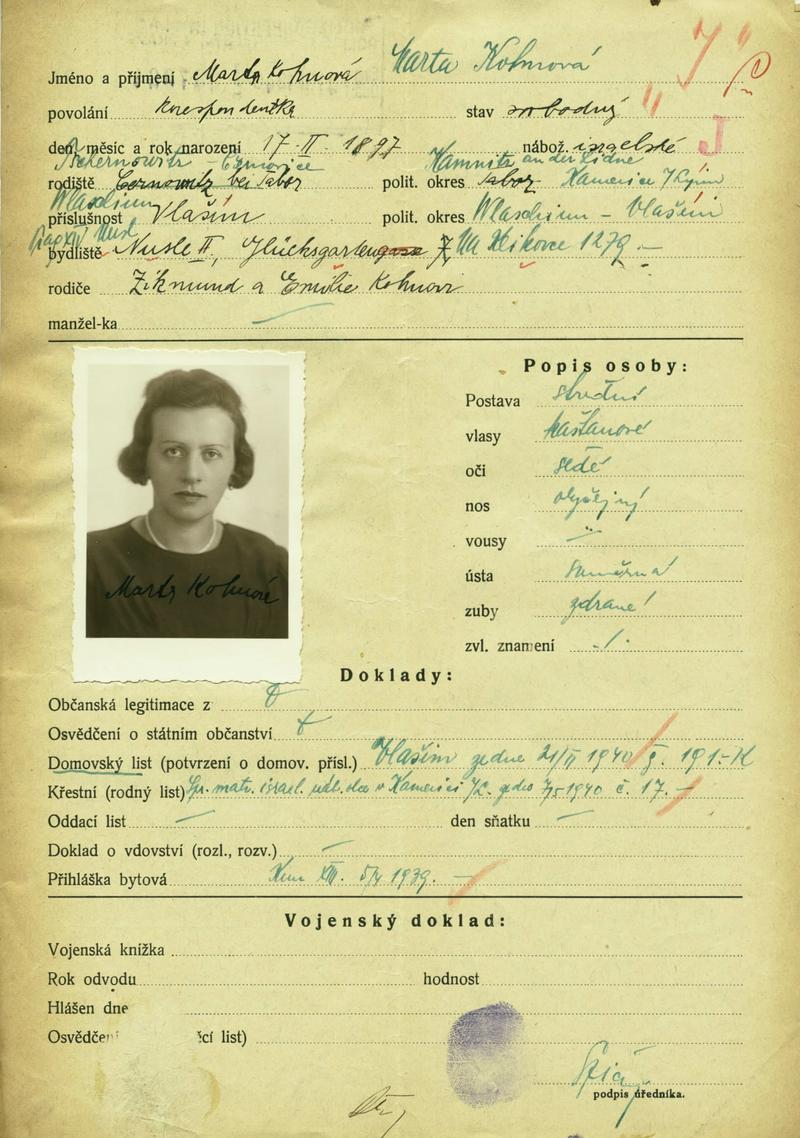 Jméno a příjmení Marta Kohnová Marta Kohnová "J"
povolání korespondentka stav svobodný
den, měsic a rok narození 17. II. 1897 nábož. israelské J
Kamnitz an der Linde
rodiště Černowitz bei Tabor polit. okres Tabor Kamenice
Wlaschim
příslušnost Vlašim polit. okres Wlaschim - Vlašim
bydliště Nusle II, Glücksgartengasse 1279.-
rodiče Zikmund a Emilie Kohnovi
manžel-ka
Popis osoby:
Postava střední
vlasy kaštanové
oči šedé
nos obyčejný
vousy
ústa souměrná
zuby zdravé
zvl. znamení
Marta Kohnová
Doklady:
Občanská legitimace z
Osvědčení o státním občanství
Domovský list (potvrzení o domov. přísl.) Vlašim ze dne 21/II 1940
Křestní (rodný list) matr. israel. v Kamenici 1940 č. 17.-
Oddací list den sňatku
Doklad o vdovství (rozl., rozv.)
Přihláška bytová XIII. 1939.
Vojenský doklad:
Vojenská knížka
Rok odvodu hodnost
Hlášen dne
Osvědče cí list)
podpis úředníka.